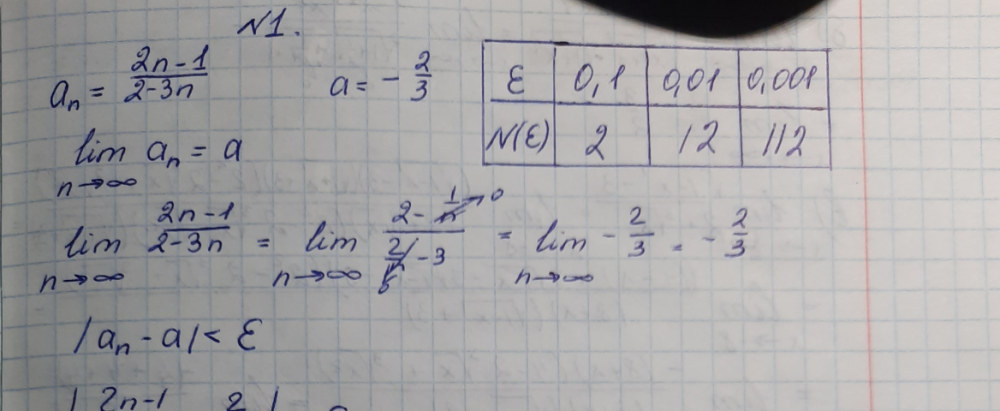 N1.
aₙ = (2n-1)/(2-3n)   a = -2/3
ε | 0,1 | 0,01 | 0,001
N(ε) | 2 | 12 | 112
lim_{n→∞} aₙ = a
lim_{n→∞} (2n-1)/(2-3n) = lim_{n→∞} (2 - 1/n→0)/(2/n→0 - 3) = lim_{n→∞} -2/3 = -2/3
|aₙ - a| < ε